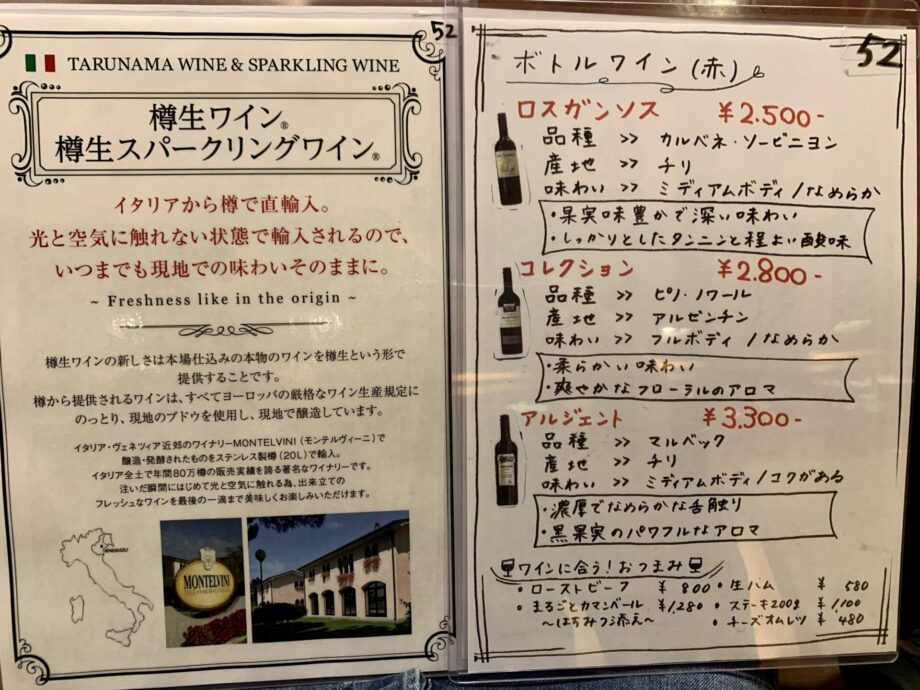 52
TARUNAMA WINE & SPARKLING WINE
樽生ワイン®
樽生スパークリングワイン®
イタリアから樽で直輸入。
光と空気に触れない状態で輸入されるので、
いつまでも現地での味わいそのままに。
~ Freshness like in the origin ~
樽生ワインの新しさは本場仕込みの本物のワインを樽生という形で
提供することです。
樽から提供されるワインは、すべてヨーロッパの厳格なワイン生産規定に
のっとり、現地のブドウを使用し、現地で醸造しています。
イタリア・ヴェネツィア近郊のワイナリーMONTELVINI(モンテルヴィーニ)で
醸造・発酵されたものをステンレス製樽(20L)で輸入。
イタリア全土で年間80万樽の販売実績を誇る著名なワイナリーです。
注いだ瞬間にはじめて光と空気に触れる為、出来立ての
フレッシュなワインを最後の一滴まで美味しくお楽しみいただけます。
VENEGAZZU
MONTELVINI
VENEGAZZU
52
ボトルワイン(赤)
ロスガンソス ¥2.500-
品種 >> カルベネ・ソービニヨン
産地 >> チリ
味わい >> ミディアムボディ/なめらか
・果実味豊かで深い味わい
・しっかりとしたタンニンと程よい酸味
コレクション ¥2.800-
品種 >> ピノ・ノワール
産地 >> アルゼンチン
味わい >> フルボディ/なめらか
・柔らかい味わい
・爽やかなフローラルのアロマ
アルジェント ¥3,300-
品種 >> マルベック
産地 >> チリ
味わい >> ミディアムボディ/コクがある
・濃厚でなめらかな舌触り
・黒果実のパワフルなアロマ
ワインに合う!おつまみ
・ローストビーフ ¥800
・生ハム ¥580
・まるごとカマンベール ¥1,280
〜はちみつ添え〜
・ステーキ200g ¥1,100
・チーズオムレツ ¥480